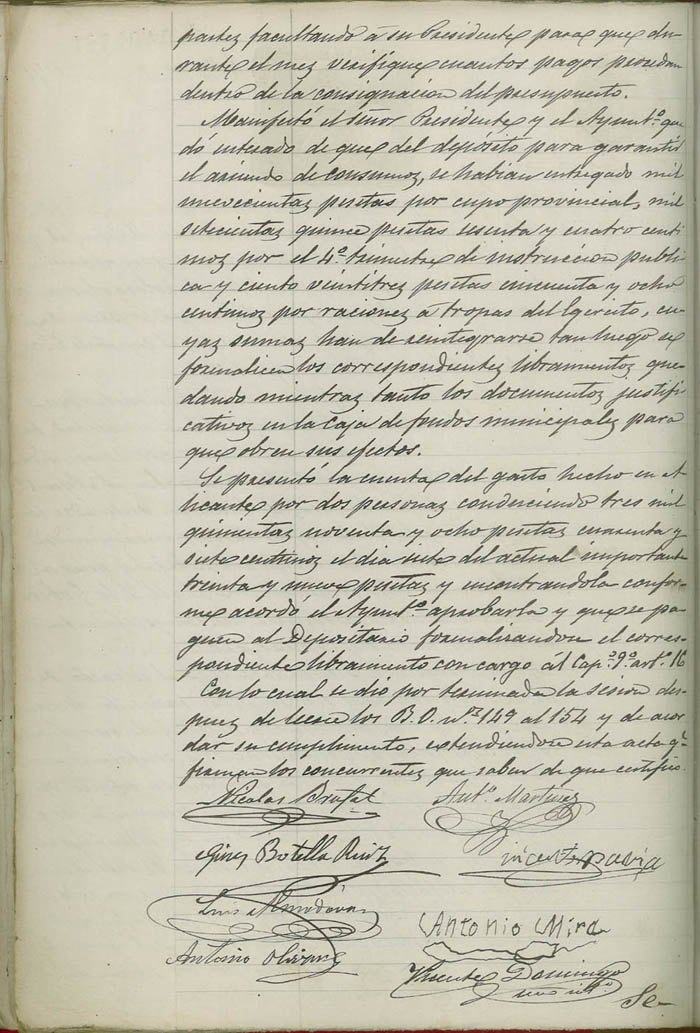 partes facultando á su Presidente para que du-
rante el mez verifique cuantos pagos procedan
dentro de la consignacion del presupuesto.
Manifestó el Señor Presidente y el Ayunt.º que
dó enterado de que del deposito para garantir
el arriendo de consumos, se habian entregado mil
nuevecientas pesetas por cupo provincial, mil
setecientas quince pesetas sesenta y cuatro centi
mos por el 4.º trimestre de instruccion publi
ca y ciento veintitrez pesetas cincuenta y ocho
centimos por raciones á tropas del Egercito, cu-
yaz sumaz han de reintegrarse tan luego se
formalicen los correspondientez libramientos que-
dando mientraz tanto los documentos justifi-
cativos en la Caja de fondos municipales para
que obren sus efectos.
Se presentó la cuenta del gasto hecho en A-
licante por dos personas conduciendo tres mil
quinientas noventa y ocho pesetas cuarenta y
siete centimos el dia siete del actual importante
treinta y nueve pesetas y encontrandola confor-
me acordó el Ayunt.º aprobarla y que se pa-
guen al Depositario formalizandose el corres-
pondiente libramiento con cargo al Cap.º 9.º art.º 1º
Con lo cual se dió por terminada la sesion des-
puez de leerse los B. O. n.os 149 al 154 y de acor
dar su cumplimento, extendiendose esta acta q.e
firman los concurrentez que saben de que certifico.
Nicolas Brufal Ant.º Martinez
Gines Botella Ruiz Vicente Pavia
Luis Almodóvar Antonio Mira
Antonio Olivares Vicente Domingo
Srio int.º
Se-